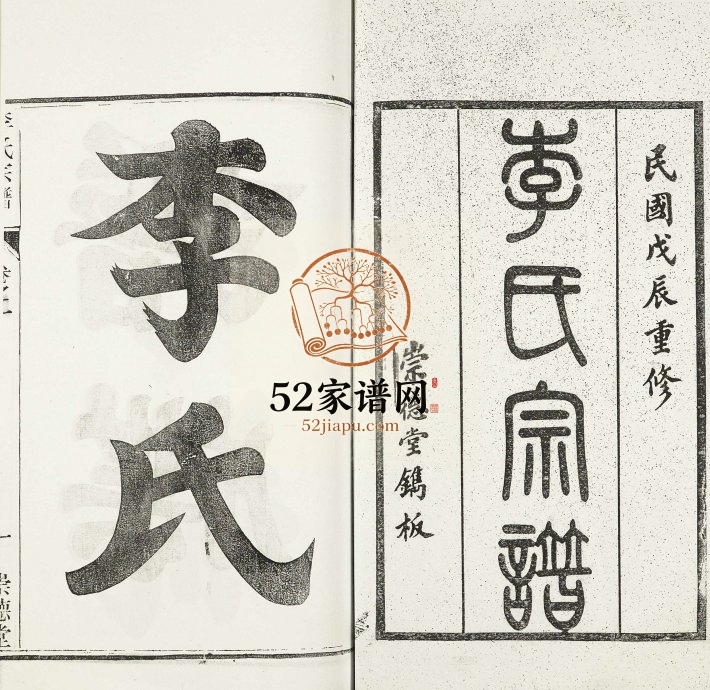 民國戊辰重修
李氏宗譜
崇德堂鐫板
李氏
李氏宗譜
卷之
一
崇德堂
52家谱网
52jiapu.com